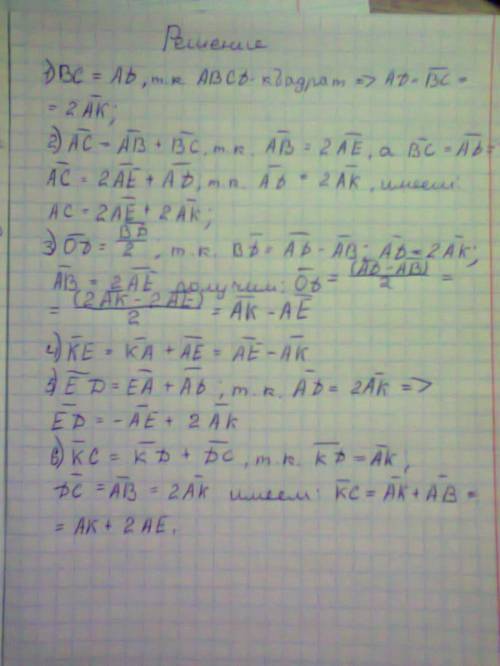 Решение
1) BC = AD, т.к. ABCD-квадрат => AD = B̅C̅ =
= 2A̅K̅;
2) A̅C̅ = A̅B̅ + B̅C̅, т.к. A̅B̅ = 2A̅E̅, а B̅C̅ = A̅D̅ =
A̅C̅ = 2A̅E̅ + A̅D̅, т.к. A̅D̅ = 2A̅K̅, имеем:
AC = 2A̅E̅ + 2A̅K̅;
3) O̅D̅ = B̅D̅/2, т.к. B̅D̅ = A̅D̅ - A̅B̅; A̅D̅ = 2A̅K̅;
A̅B̅ = 2A̅E̅ получим: O̅D̅ = (A̅D̅-A̅B̅)/2 =
= (2A̅K̅ - 2A̅E̅)/2 = A̅K̅ - A̅E̅
4) K̅E̅ = K̅A̅ + A̅E̅ = A̅E̅ - A̅K̅
5) E̅D̅ = E̅A̅ + A̅D̅; т.к. A̅D̅ = 2A̅K̅ =>
E̅D̅ = -A̅E̅ + 2A̅K̅
6) K̅C̅ = K̅D̅ + D̅C̅, т.к. K̅D̅ = A̅K̅;
D̅C̅ = A̅B̅ = 2A̅K̅ имеем: K̅C̅ = A̅K̅ + A̅B̅ =
= AK + 2AE.